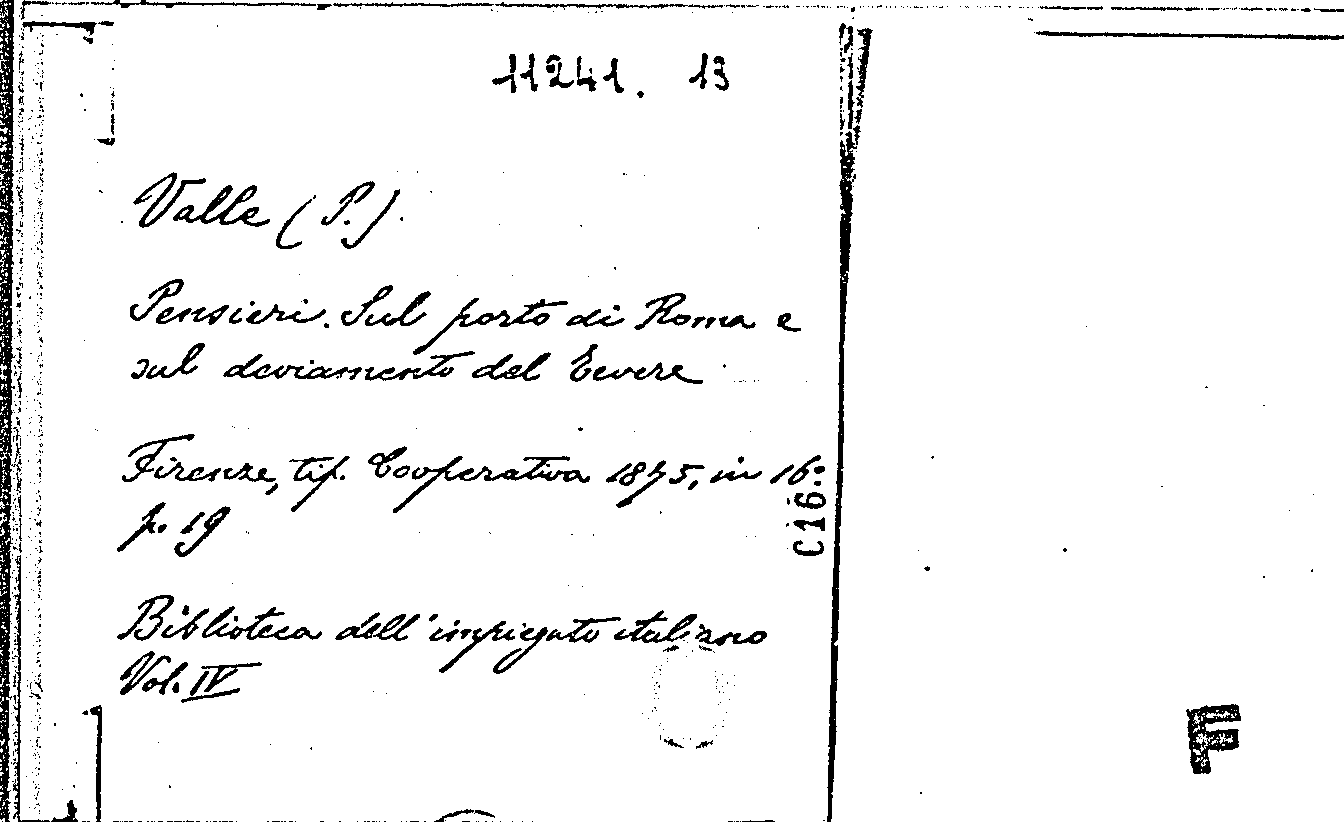 11241. 13
Valle (P.).
Pensieri. Sul porto di Roma e
sul deviamento del Tevere
Firenze, tip. Cooperativa 1875, in 16º
p. 19
C16
Biblioteca dell'impiegato italiano
Vol. IV
F